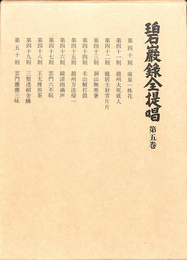 碧巖錄全提唱
第五巻
第四十則 南泉一株花
第四十一則 趙州大死底人
第四十二則 龐居士好雪片片
第四十三則 洞山無寒暑
第四十四則 禾山解打鼓
第四十五則 趙州万法帰一
第四十六則 鏡清雨滴声
第四十七則 雲門六不収
第四十八則 王太傅煎茶
第四十九則 三聖透網金鱗
第五十則 雲門塵塵三昧